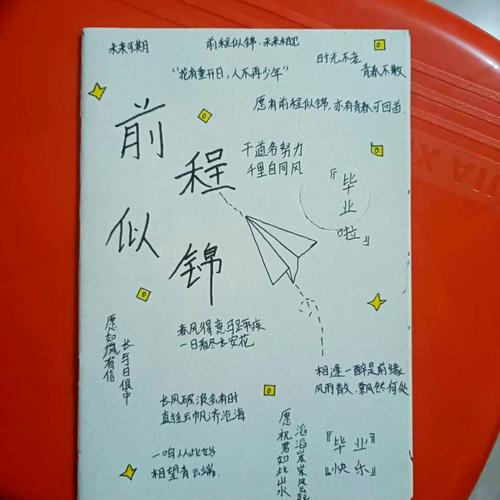 未来可期
前程似锦·未来相见
时光不老
青春不散
“花有重开日，人不再少年”
愿有前程似锦，亦有青春可回首
前
程
似
锦
千道各努力
千里自同风
『毕业啦』
春风得意马蹄疾
一日看尽长安花
愿如风有信
长与日俱中
长风破浪会有时
直挂云帆济沧海
相逢一醉是前缘
风雨散、飘然何处
一鸣从此始
相望青云端
愿祝君如此山水
滔滔岌岌风云起
『毕业』
『快乐』